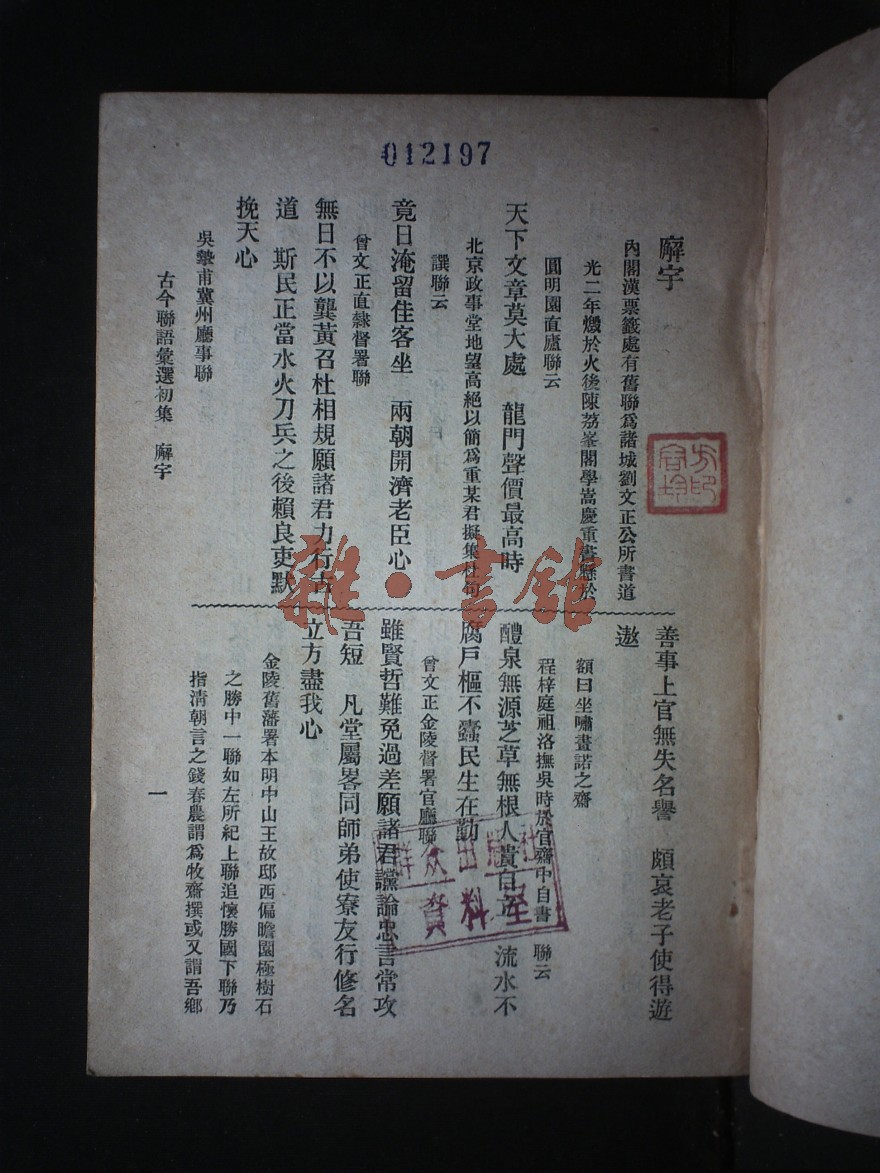 012197
廨宇
內閣漢票籤處有舊聯爲諸城劉文正公所書道
光二年燬於火後陳荔峯閣學嵩慶重書懸於
圓明園直廬聯云
天下文章莫大處　龍門聲價最高時
北京政事堂地望高絕以簡爲重某君擬集杜句
譔聯云
竟日淹留佳客坐　兩朝開濟老臣心
曾文正直隸督署聯
無日不以龔黃召杜相規願諸君力行古
道　斯民正當水火刀兵之後賴良吏默
挽天心
吳摯甫冀州廳事聯
善事上官無失名譽　頗哀老子使得遊
遨
額曰坐嘯畫諾之齋
程梓庭祖洛撫吳時於官齋中自書　聯云
醴泉無源芝草無根人貴自立　流水不
腐戶樞不蠹民生在勤
曾文正金陵督署官廳聯
雖賢哲難免過差願諸君讜論忠言常攻
吾短　凡堂屬畧同師弟使寮友行修名
立方盡我心
金陵舊藩署本明中山王故邸西偏瞻園極樹石
之勝中一聯如左所紀上聯追懷勝國下聯乃
指清朝言之錢春農謂爲牧齋撰或又謂吾鄉
古今聯語彙選初集　廨宇
一
雜·書館
群众出版社
資料室